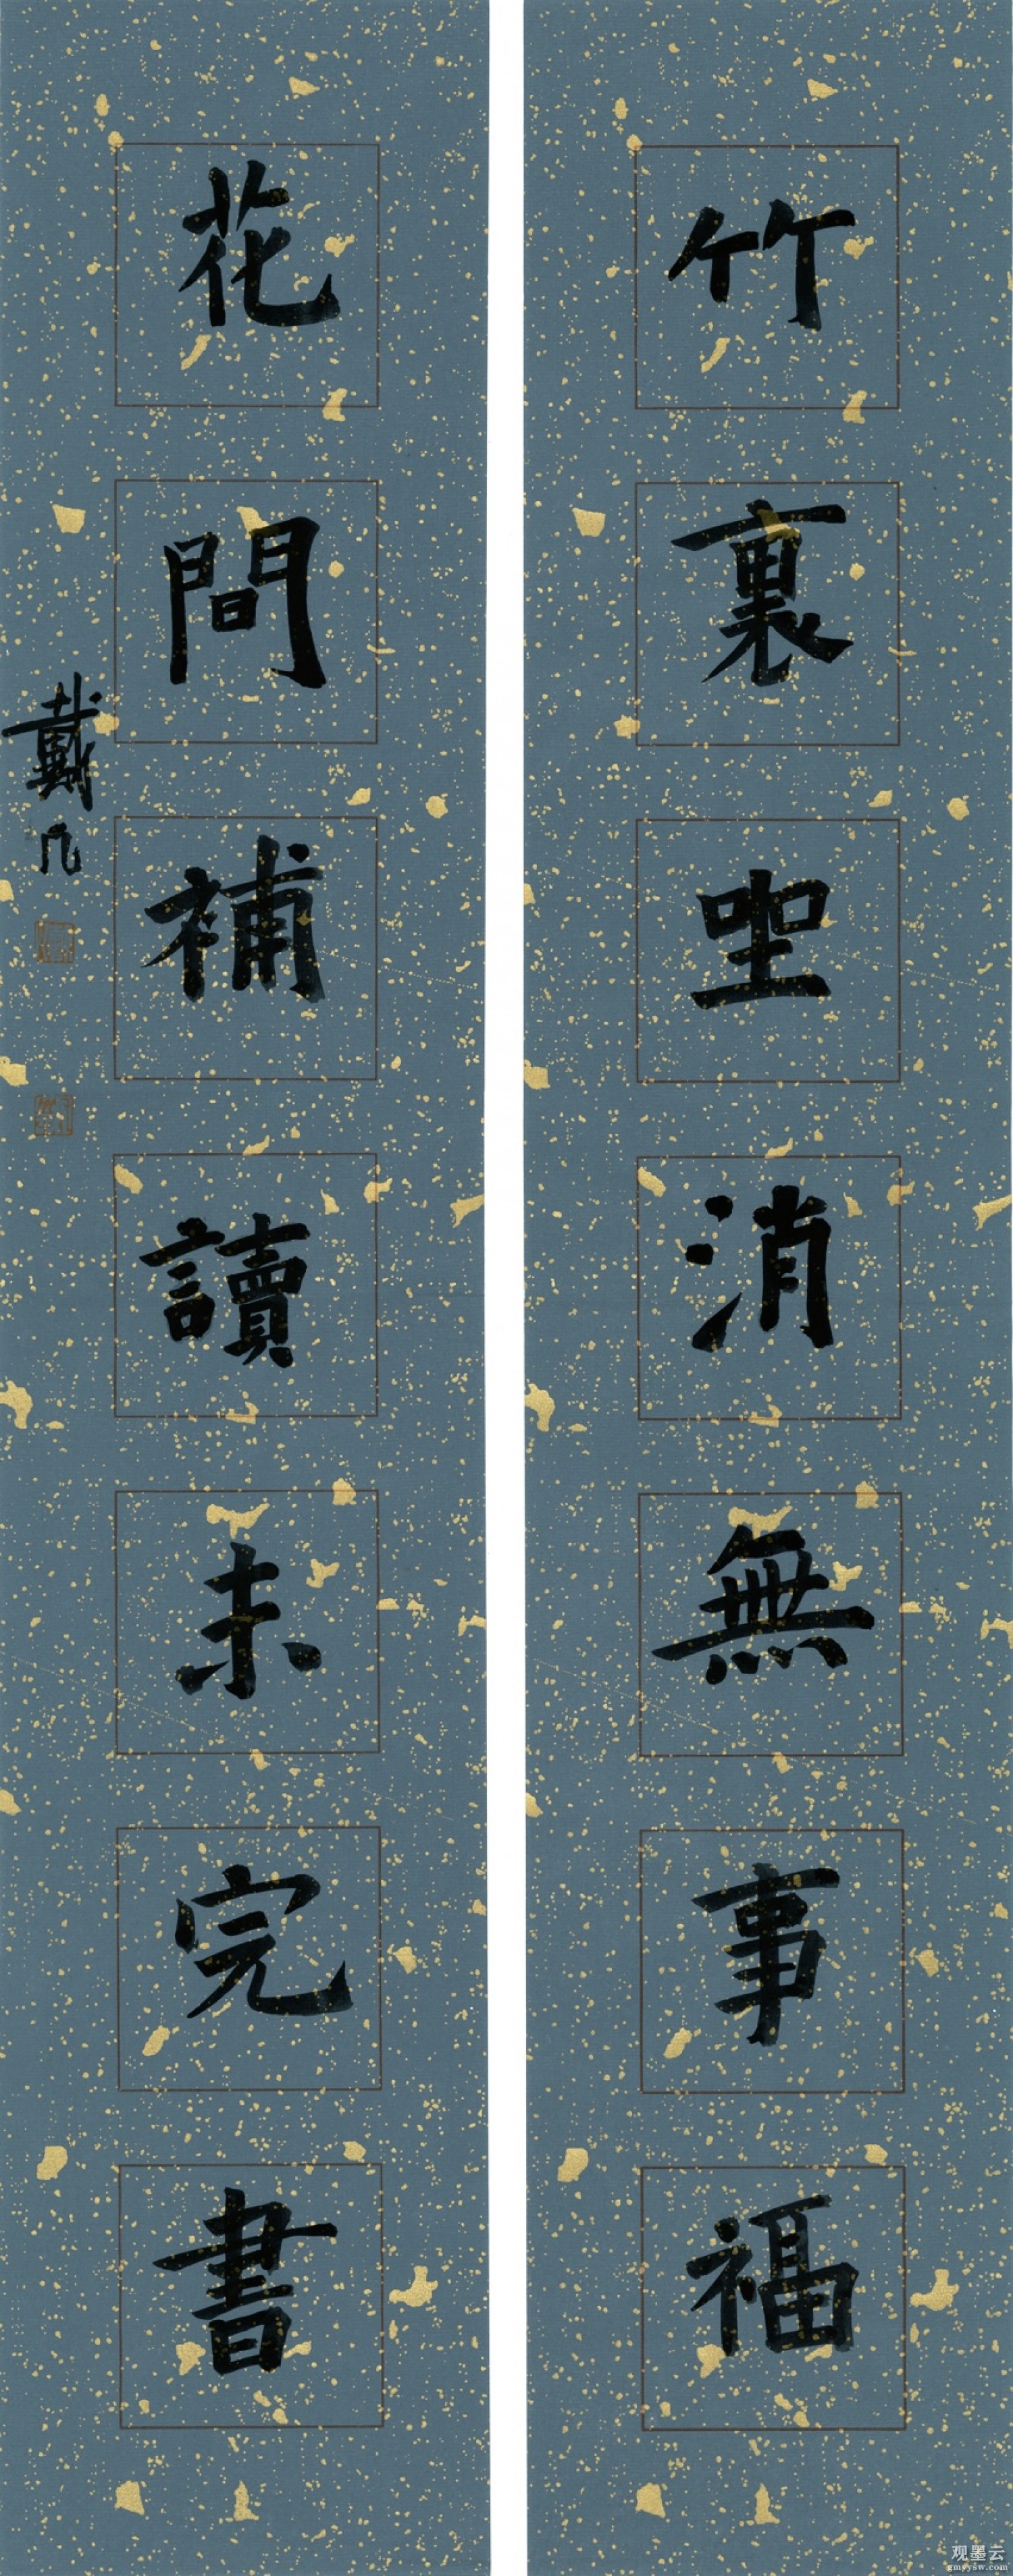 竹裏坐消無事福
花間補讀未完書
戴凡
观墨云
gmyysw.com